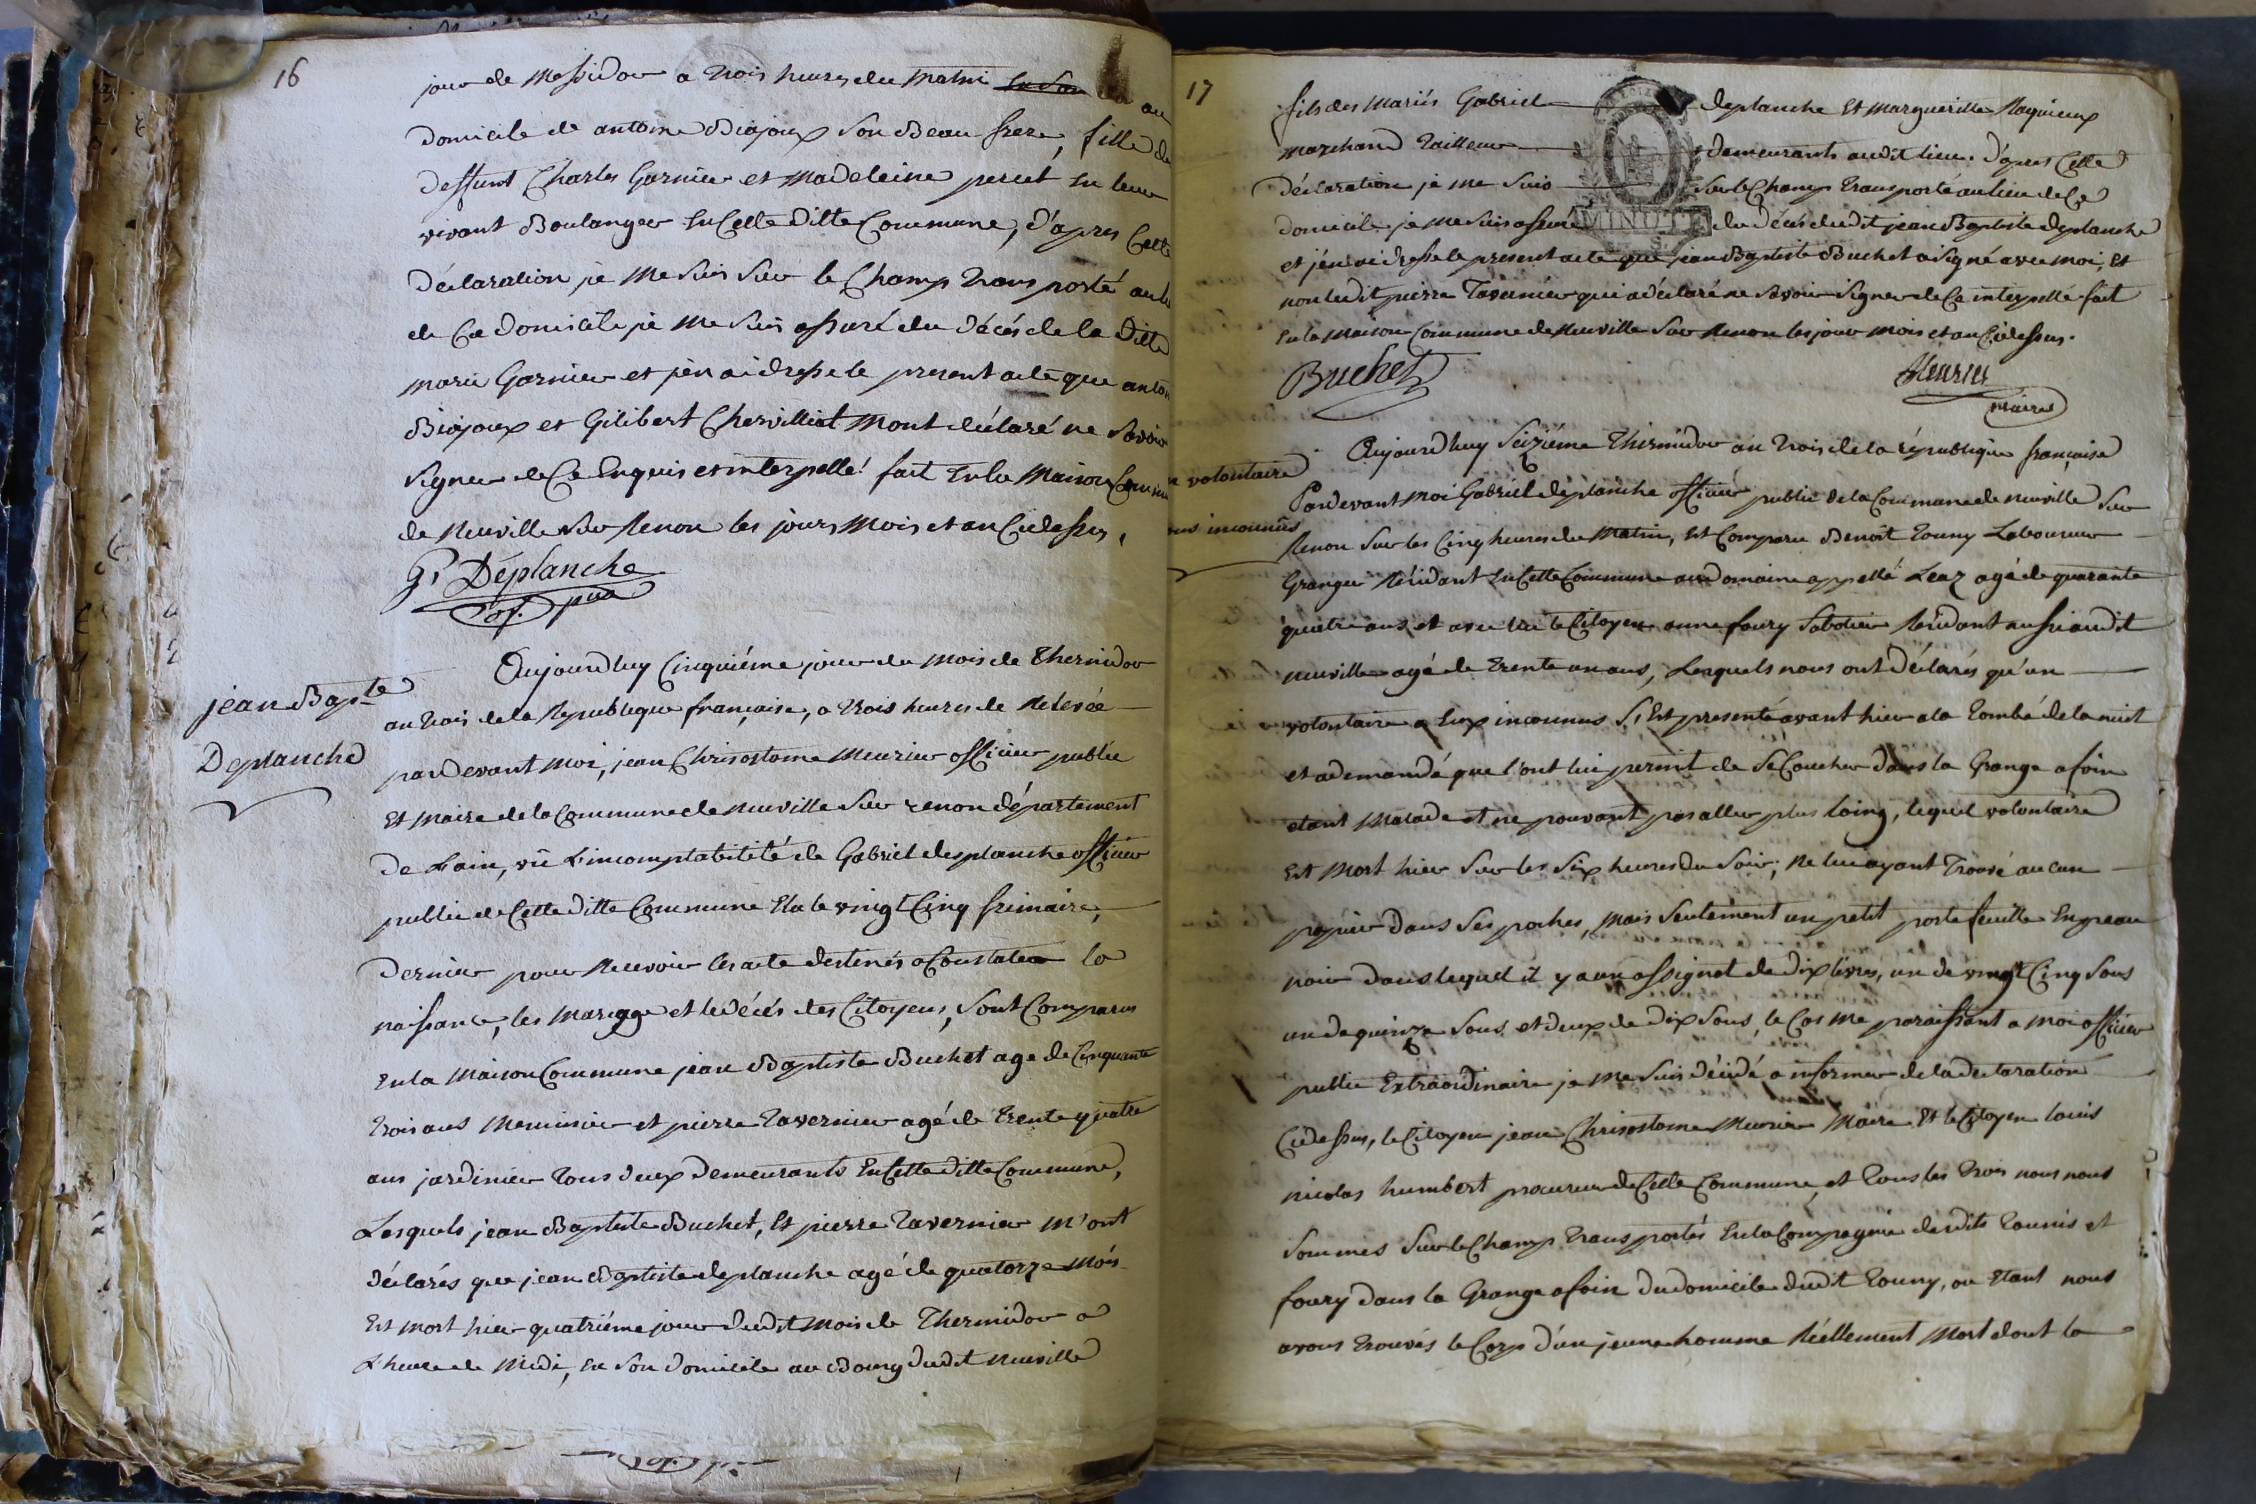 16
jour de Messidor a trois heures du matin au
domicile de antoine Biajoux son Beau frere, fille de
deffunt Charles Garnier et Madeleine percet en leur
vivant Boulanger en Cette ditte Commune, d'après Cette
déclaration je me suis sur le Champ transporté au lieu
de Ce domicile je me suis assuré du décés de la ditte
marie Garnier et j'en ai dressé le present acte que antoine
Biajoux et Gilibert Chervilliat m'ont déclaré ne savoir
signer de Ce Enquis et interpellé! fait en la maison Commune
de neuville sur Renon les jours mois et an Cidessus,
G. Déplanche
off. pub
jean Bapte
Deplanche
Aujourdhuy Cinquiéme jour du mois de thermidor
an trois de la Republique française, a trois heures de Relevée
pardevant moi, jean Chrisostome Meurier officier public
Et maire de la Commune de neuville sur renon département
de Lain, vû L'incomptabilité de Gabriel desplanche officier
public de Cette ditte Commune Elu le vingt Cinq frimaire,
dernier pour Recevoir les acte destinés a Constater la
naissance, les mariage et le décés des Citoyens, sont Comparus
En la maison Commune jean Baptiste Buchet age de Cinquante
trois ans Menuisier et pierre tavernier agé de trente quatre
ans jardinier tous deux demeurants En Cette ditte Commune,
Lesquels jean Baptiste Buchet, Et pierre tavernier m'ont
déclarés que jean Baptiste deplanche agé de quatorze mois
Est mort hier quatriéme jour dudit mois de Thermidor a
L'heure de midi, en son domicile au Bourg dudit neuville
17
fils des mariés Gabriel deplanche Et marguerille Raquieux
marchand tailleur demeurants audit lieu. d'après Cette
déclaration je me suis sur le Champ transporté au lieu de Ce
domicile, je me suis assuré du décés dudit jean Baptiste deplanche
MINUTE
et j'en ai dressé le present acte que jean Baptiste Buchet a signé avec moi, Et
non ledit pierre Tavernier qui a déclaré ne savoir signer de Ce interpellé fait
En la maison Commune de neuville sur Renon les jour mois et an Cidessus.
Buchet
Meurier
maire
volontaire
inconnûs
Aujourdhuy Seiziéme thermidor an trois de la république française
Pardevant moi Gabriel deplanche officier public de la Commune de neuville sur
Renon sur les Cinq heures du matin, Est Comparu Benoît touny Laboureur
Granger Résidant En Cette Commune au domaine appellé Leaz agé de quarante
quatre ans et avec lui le Citoyen anne foury Sabotier Résidant aussi audit
neuville agé de trente un ans, Lesquels nous ont Déclarés qu'un
volontaire a Eux inconnus S'Est presenté avant hier a la tombé de la nuit
et a demandé que l'ont lui permit de se Coucher dans la Grange a foin
etant malade et ne pouvant pas aller plus loing, lequel volontaire
Est mort hier sur les six heures du soir; ne lui ayant trouvé aucun
papier dans ses poches, mais seulement un petit porte feuille En peau
noir dans lequel il y a un assignat de dix livres, un de vingt Cinq sous
un de quinze sous et deux de dix sous, le Cas me paraissant a moi officier
public Extraordinaire je me suis décidé a informer de la declaration
Cidessus, le Citoyen jean Chrisostome Meurier Maire Et le Citoyen louis
nicolas humbert procureur de Cette Commune, et tous les trois nous nous
sommes sur le Champ transportés En la Compagnie desdits tounis et
foury dans la Grange a foin du domicile dudit touny, ou Etant nous
avons trouvés le Corp d'un jeune homme Réellement mort dont la